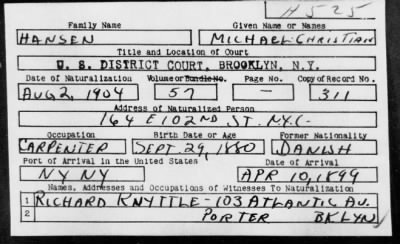 H525
Family Name Given Name or Names
HANSEN MICHAEL CHRISTIAN
Title and Location of Court
U. S. DISTRICT COURT, BROOKLYN, N.Y.
Date of Naturalization Volume or Bundle No. Page No. Copy of Record No.
AUG 2, 1904 57 - 311
Address of Naturalized Person
164 E 102ND ST. N.Y.C.-
Occupation Birth Date or Age Former Nationality
CARPENTER SEPT. 29, 1880 DANISH
Port of Arrival in the United States Date of Arrival
NY NY APR 10, 1899
Names, Addresses and Occupations of Witnesses To Naturalization
1 RICHARD KNYTTLE - 103 ATLANTIC AV.
2 PORTER BKLYN